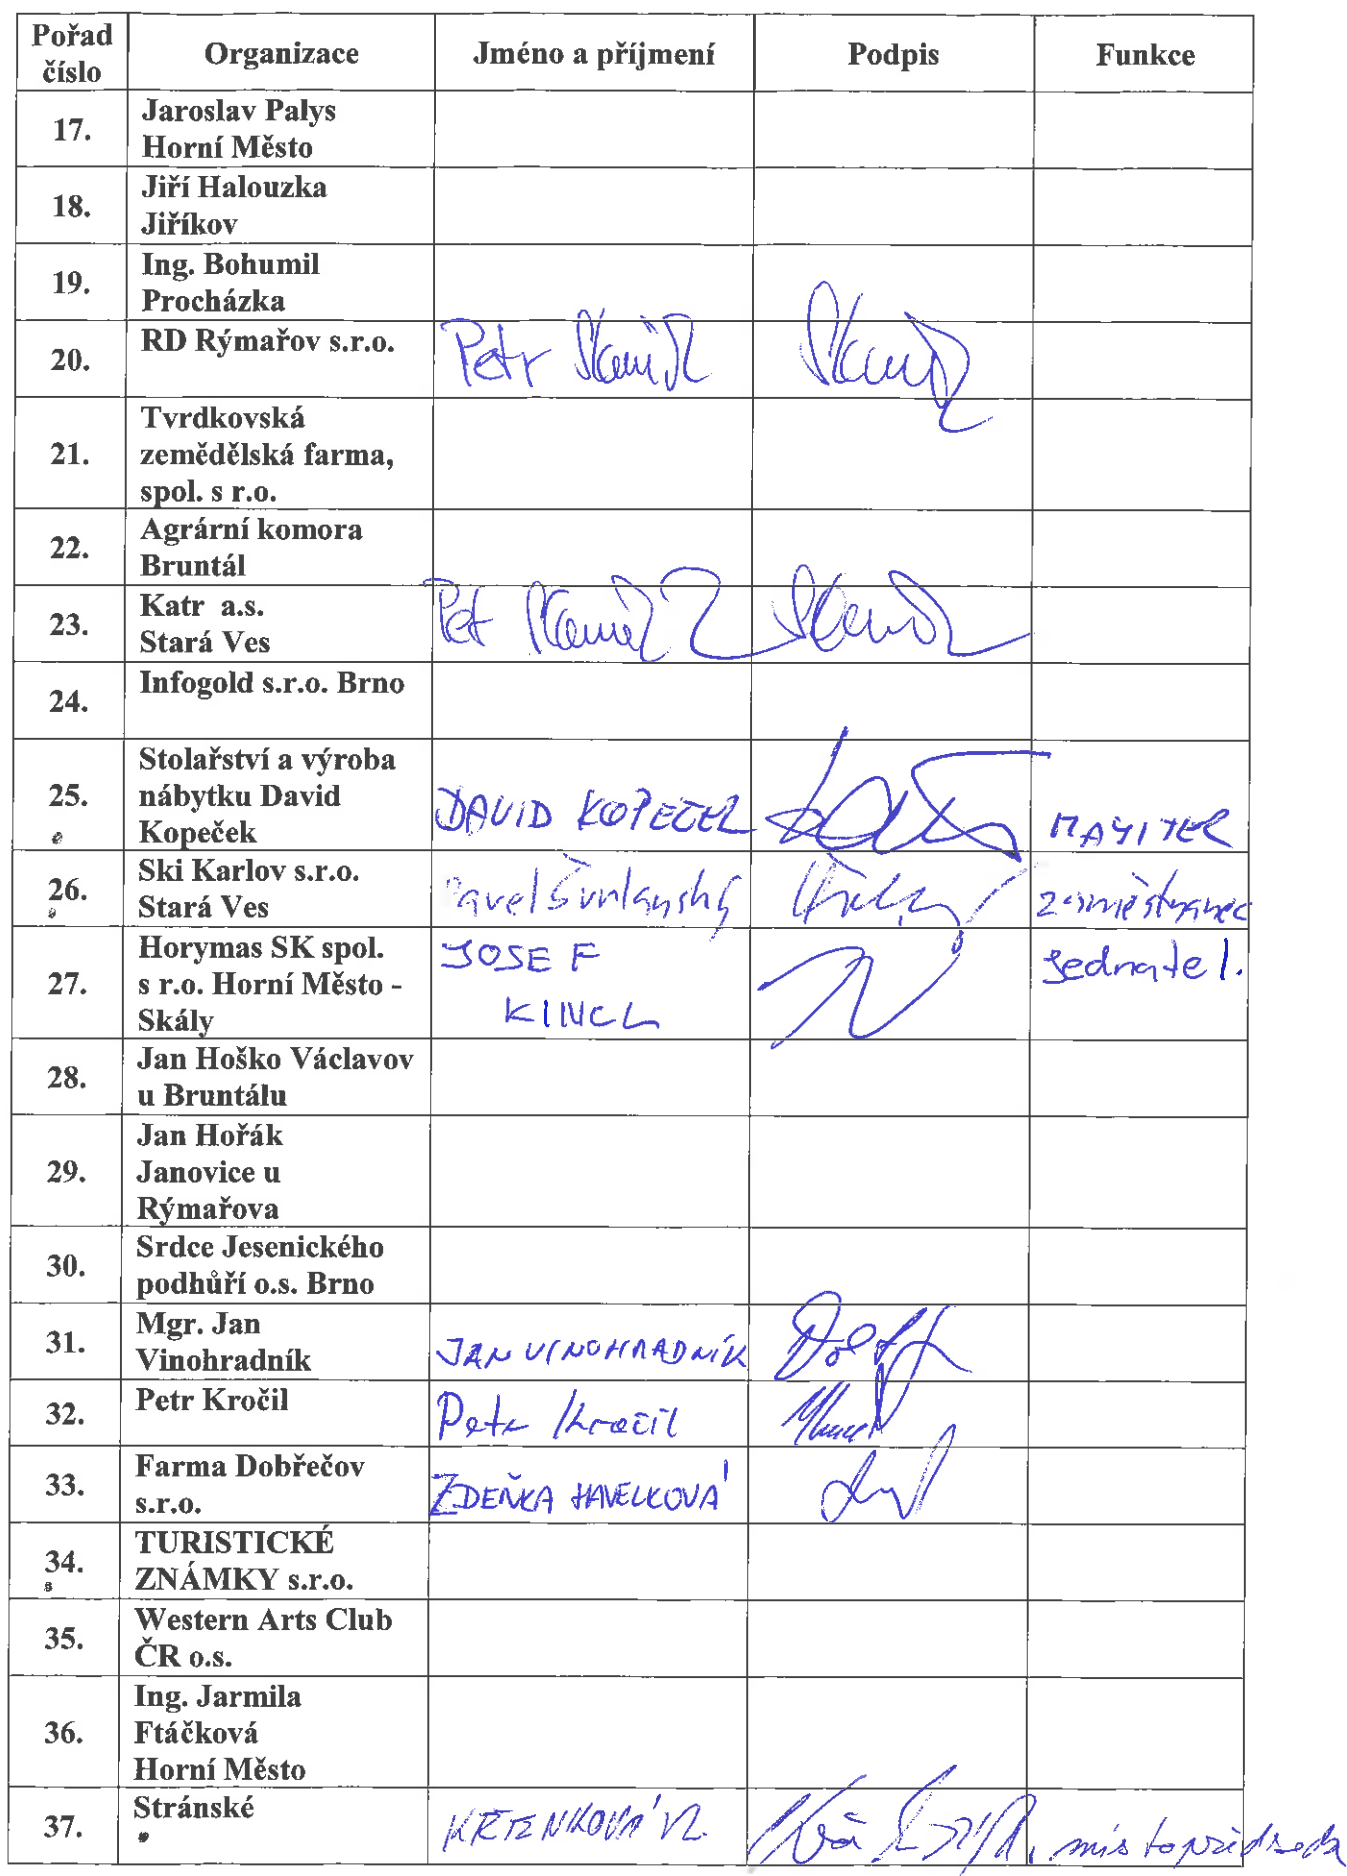 Pořad číslo Organizace Jméno a příjmení Podpis Funkce
17. Jaroslav Palys
Horní Město
18. Jiří Halouzka
Jiříkov
19. Ing. Bohumil
Procházka
20. RD Rýmařov s.r.o. Petr
21. Tvrdkovská
zemědělská farma,
spol. s r.o.
22. Agrární komora
Bruntál
23. Katr a.s. Petr
Stará Ves
24. Infogold s.r.o. Brno
25. Stolařství a výroba
nábytku David DAVID KOPEČEK MAJITEL
Kopeček
26. Ski Karlov s.r.o. Pavel zaměstnanec
Stará Ves
27. Horymas SK spol. JOSEF jednatel.
s r.o. Horní Město - KINCL
Skály
28. Jan Hoško Václavov
u Bruntálu
29. Jan Hořák
Janovice u
Rýmařova
30. Srdce Jesenického
podhůří o.s. Brno
31. Mgr. Jan
Vinohradník JAN VINOHRADNÍK
32. Petr Kročil Petr Kročil
33. Farma Dobřečov
s.r.o. ZDEŇKA HAVELKOVÁ
34. TURISTICKÉ
ZNÁMKY s.r.o.
35. Western Arts Club
ČR o.s.
36. Ing. Jarmila
Ftáčková
Horní Město
37. Stránské KŘTENKOVÁ místopředseda